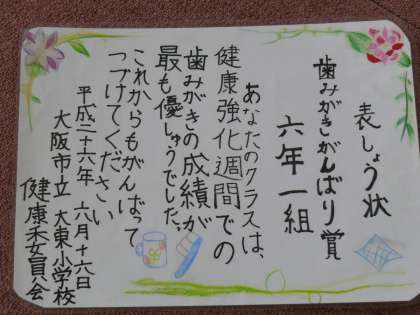 表しょう状
歯みがきがんばり賞
六年一組
あなたのクラスは、
健康強化週間での
歯みがきの成績が
最も優しゅうでした。
これからもがんばって
つづけてください
平成二十六年 六月十六日
大阪市立 大東小学校
健康委員会